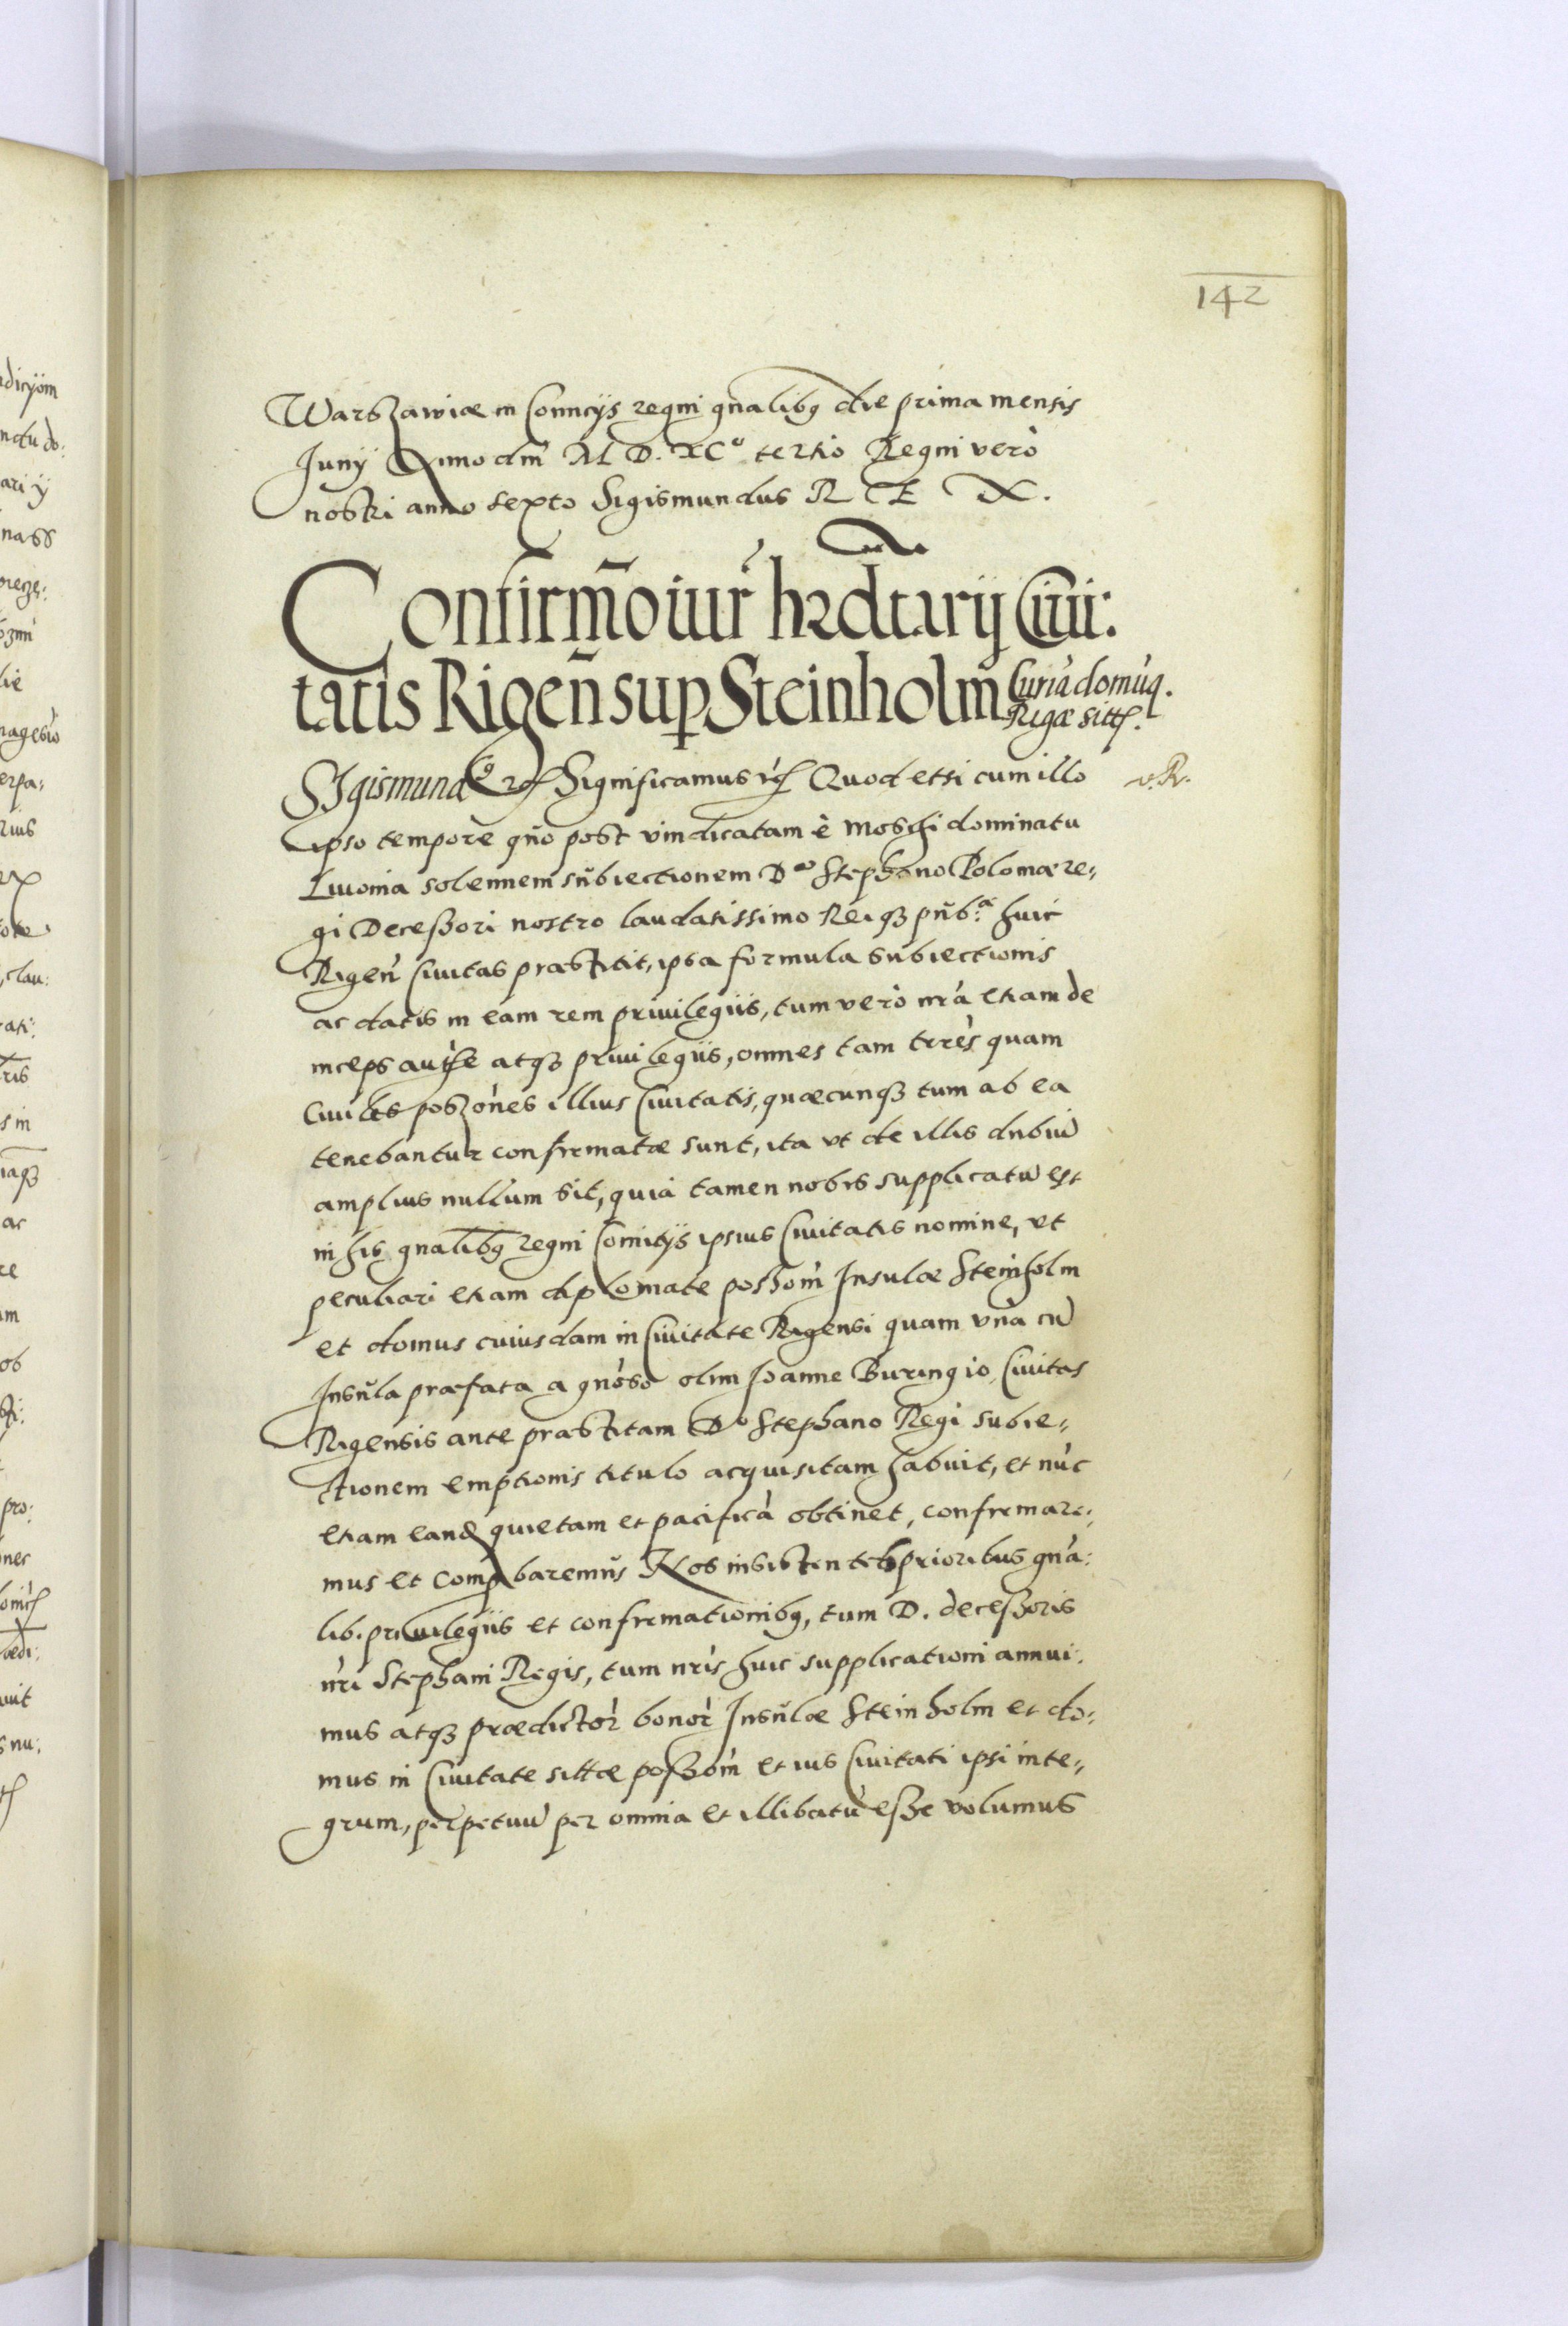 142
Warszawiæ in Comicÿs regni gñalibq die prima mensis
Junÿ Anno dm̃ M D. XCº tertio Regni verò
nostri anno sexto Sigismundus R E X.
Confirm̃o iur̃ hæredt̃arÿ Civi:
tatis Rigeñ sup Steinholm̃ Curià domùq.
Rigæ sitt.
SIgismundq Significamus Quod etsi cum illo
v. R.
ipso tempore qño post vindicatam è Moschi dominatu
Livonia solennem subiectionem Dº Stephano Poloniæ re„
gi Deceßori nostro laudatissimo Reiqz pũb.ᵃ huic
Rigeñ Civitas præstitit, ipsa formula subiectionis
ac datis in eam rem privilegiis, tum verò nr̃a etiam de
inceps auth̃e atqz privilegiis, omnes tam terrẽs quam
Civiles poszoñes illius Civitatis, quæcunqz tum ab ea
tenebantur confirmatæ sunt, ita vt de illis dubiũ
amplius nullum sit, quia tamen nobis supplicatũ est
in his gnalibq regni Comitÿs ipsius Civitatis nomine, vt
peculiari etiam diplomate poszom̃ Insulæ Steinholm
et domus cuiusdam in Civitate Rigensi quam vnà cũ
Insula præfata a gnõso olim Joanne Buringio, Civitas
Rigensis ante præstitam Dº Stephano Regi subie„
ctionem emptionis titulo acquisitam habuit, et nũc
etiam eand quietam et pacificà obtinet, confirmare„
mus et comprobaremus Nos insistentes prioribus gnã:
lib. privilegiis et confirmationibq, tum D. deceßoris
nr̃i Stephani Regis, tum nr̃is huic supplicationi annui:
mus atqz prædictor̃ bonor̃ Insulæ Steinholm et do:
mus in Civitate sittæ poßzom̃ et ius Civitati ipsi inte„
grum, perpetuũ per omnia et illibatũ eße volumus